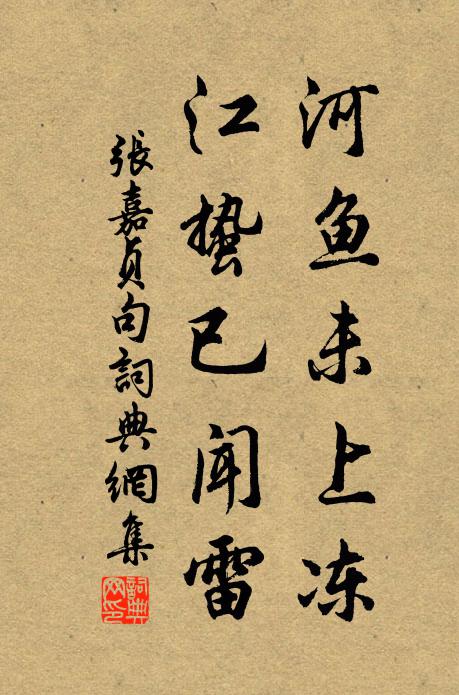 河鱼未上冻
江蛰已闻雷
張嘉貞句詞典網集
詞典网印